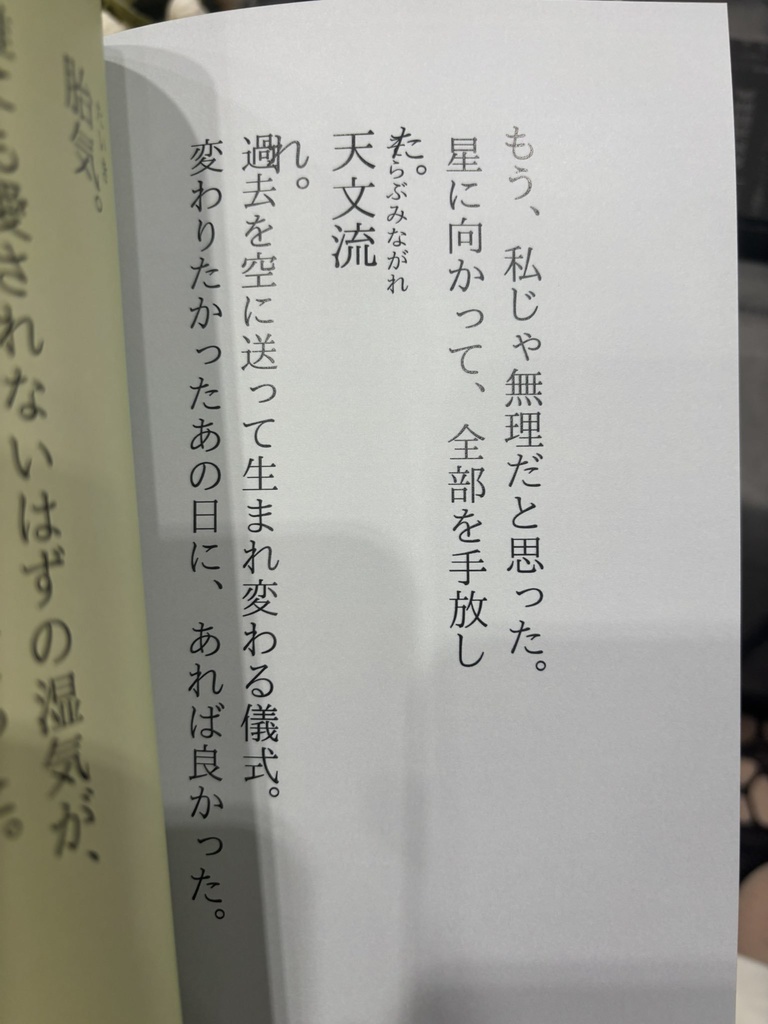 もう、私じゃ無理だと思った。
星に向かって、全部を手放し
た。
そらぶみながれ
天文流
れ。
過去を空に送って生まれ変わる儀式。
変わりたかったあの日に、あれば良かった。
たいき
胎気。
にも愛されないはずの湿気が、